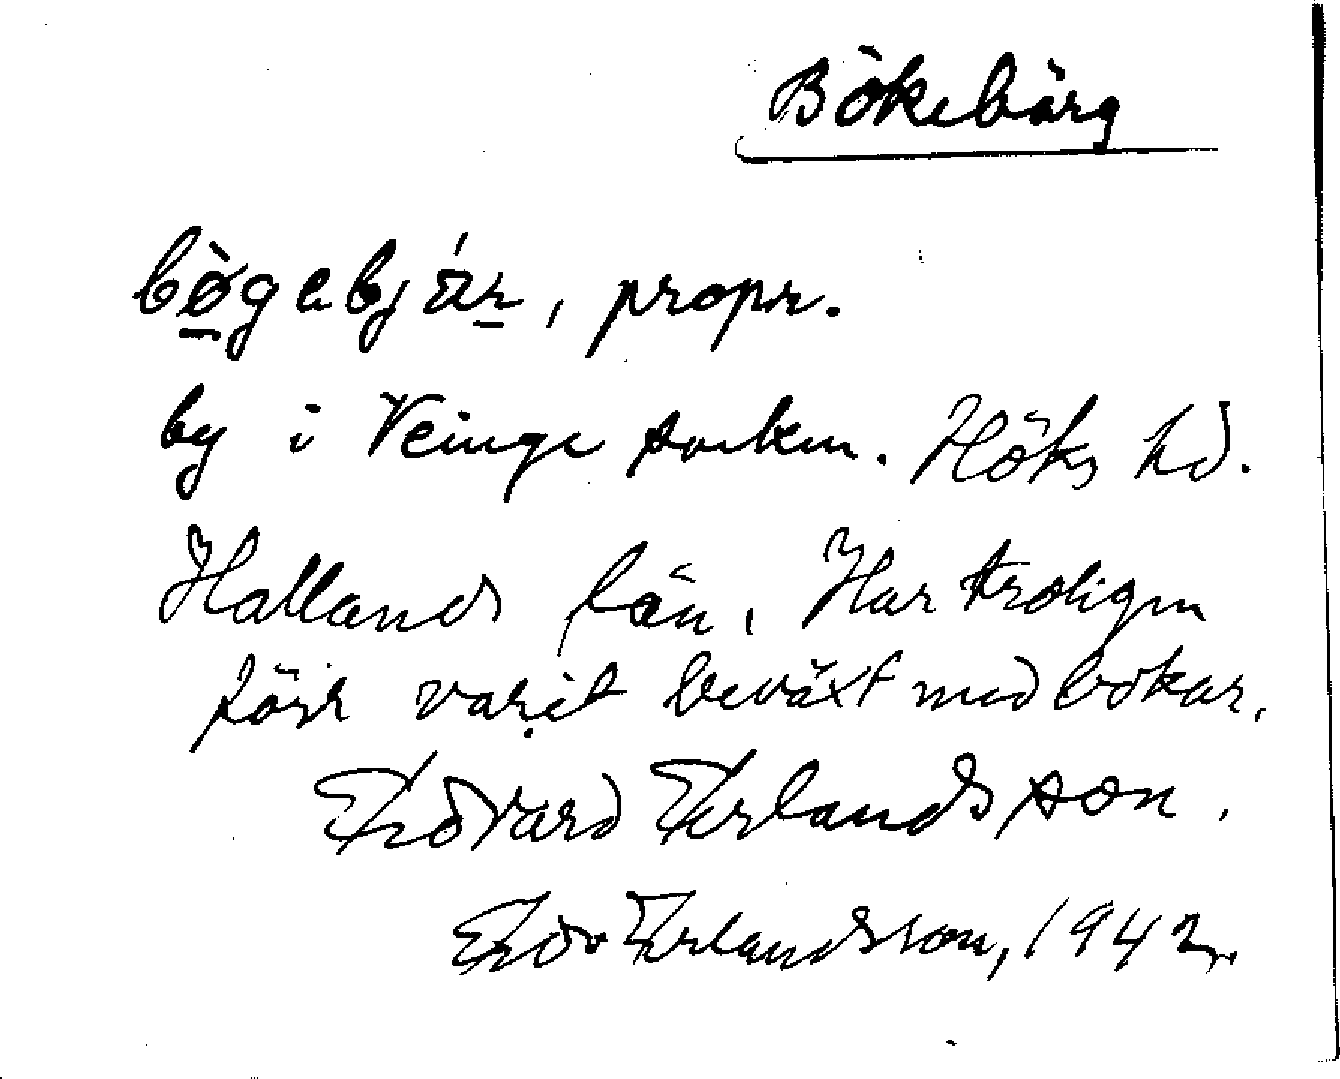 Bökebärg
bø̀gebjǽr, propr.
by i Veinge socken. Höks hd.
Hallands län. Har troligen
förr varit beväxt med bokar.
Edvard Erlandsson.
Edv Erlandsson, 1942.